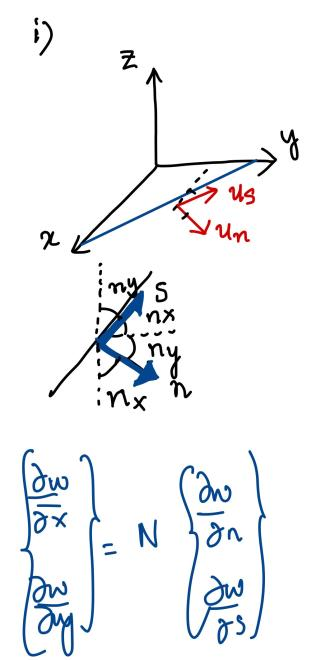 i)
z
y
x
us
un
ny
s
nx
ny
nx
n
{∂w/∂x ∂w/∂y} = N {∂w/∂n ∂w/∂s}